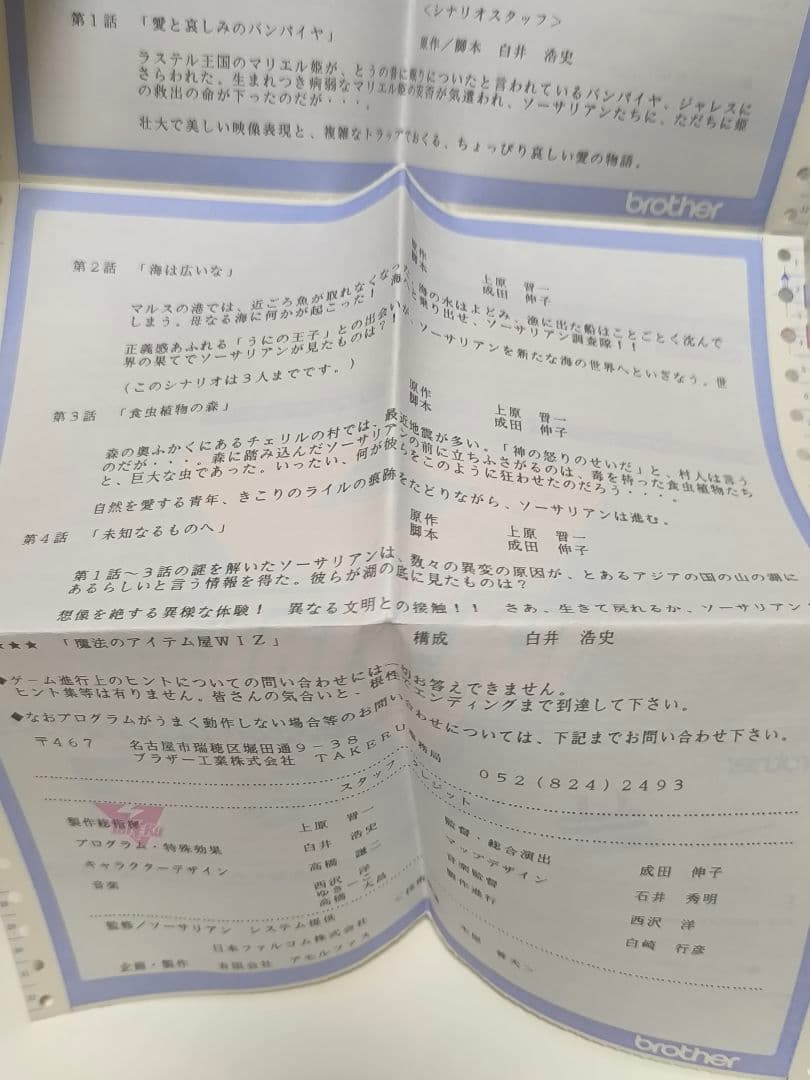 <シナリオスタッフ>
第1話 「愛と哀しみのバンパイヤ」 原作/脚本 白井 浩史
ラステル王国のマリエル姫が、とうの昔に眠りについたと言われているバンパイヤ、ジャレスに
さらわれた。生まれつき病弱なマリエル姫の安否が気遣われ、ソーサリアンたちに、ただちに姫
の救出の命が下ったのだが・・・。
壮大で美しい映像表現と、複雑なトラップでおくる、ちょっぴり哀しい愛の物語。
brother
第2話 「海は広いな」 原作 上原 晋一
脚本 成田 伸子
マルスの港では、近ごろ魚が取れなくなった。海の水はよどみ、漁に出た船はことごとく沈んで
しまう。母なる海に何かが起こった! 海へと乗り出せ、ソーサリアン調査隊!!
正義感あふれる「うにの王子」との出会いが、ソーサリアンを新たな海の世界へといざなう。世
界の果てでソーサリアンが見たものは?!
(このシナリオは3人までです。)
第3話 「食虫植物の森」 原作 上原 晋一
脚本 成田 伸子
森の奥ふかくにあるチェリルの村では、最近地震が多い。「神の怒りのせいだ」と、村人は言う
のだが・・・・。森に踏み込んだソーサリアンの前に立ちふさがるのは、毒を持った食虫植物たち
と、巨大な虫であった。いったい、何が彼らをこのように狂わせたのだろう・・・・。
自然を愛する青年、きこりのライルの痕跡をたどりながら、ソーサリアンは進む。
第4話 「未知なるものへ」 原作 上原 晋一
脚本 成田 伸子
第1話~3話の謎を解いたソーサリアンは、数々の異変の原因が、とあるアジアの国の山の湖に
あるらしいと言う情報を得た。彼らが湖の底に見たものは?
想像を絶する異様な体験! 異なる文明との接触!! さあ、生きて戻れるか、ソーサリアン
★★★ 「魔法のアイテム屋WIZ」 構成 白井 浩史
◆ゲーム進行上のヒントについての問い合わせには一切お答えできません。
ヒント集等は有りません。皆さんの気合いと、根性でエンディングまで到達して下さい。
◆なおプログラムがうまく動作しない場合等のお問い合わせについては、下記までお問い合わせ下さい。
〒467 名古屋市瑞穂区堀田通9-38
ブラザー工業株式会社 TAKERU事務局 052(824)2493
スタッフクレジット
製作総指揮 上原 晋一 監督・総合演出 成田 伸子
プログラム・特殊効果 白井 浩史 マップデザイン 石井 秀明
キャラクターデザイン 高橋 謙二 音楽監督 西沢 洋
音楽 西沢 洋 製作進行 白崎 行彦
ゆきーこ
高橋 大昌
監修/ソーサリアン システム提供
日本ファルコム株式会社
企画・製作 有限会社 アモルファス
brother